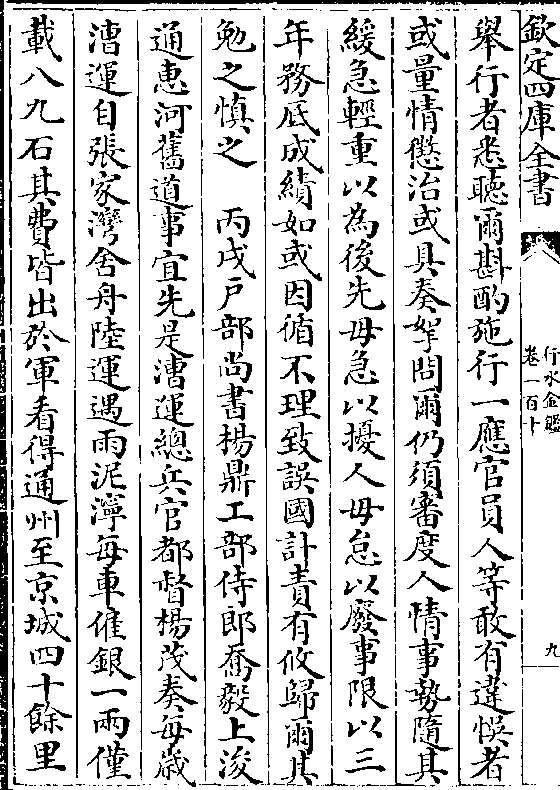 欽定四庫全書
行水金鑑
卷一百十
九
舉行者悉聽爾斟酌施行一應官員人等敢有違悞者
或量情懲治或具奏拏問爾仍須審度人情事勢隨其
緩急輕重以為後先毋急以擾人毋怠以廢事限以三
年務底成績如或因循不理致誤國計責有攸歸爾其
勉之慎之　丙戌戸部尚書楊鼎工部侍郎喬毅上浚
通惠河舊道事宜先是漕運總兵官都督楊茂奏每歳
漕運自張家灣舍舟陸運遇雨泥濘每車僱銀一兩僅
載八九石其費皆出於軍看得通州至京城四十餘里